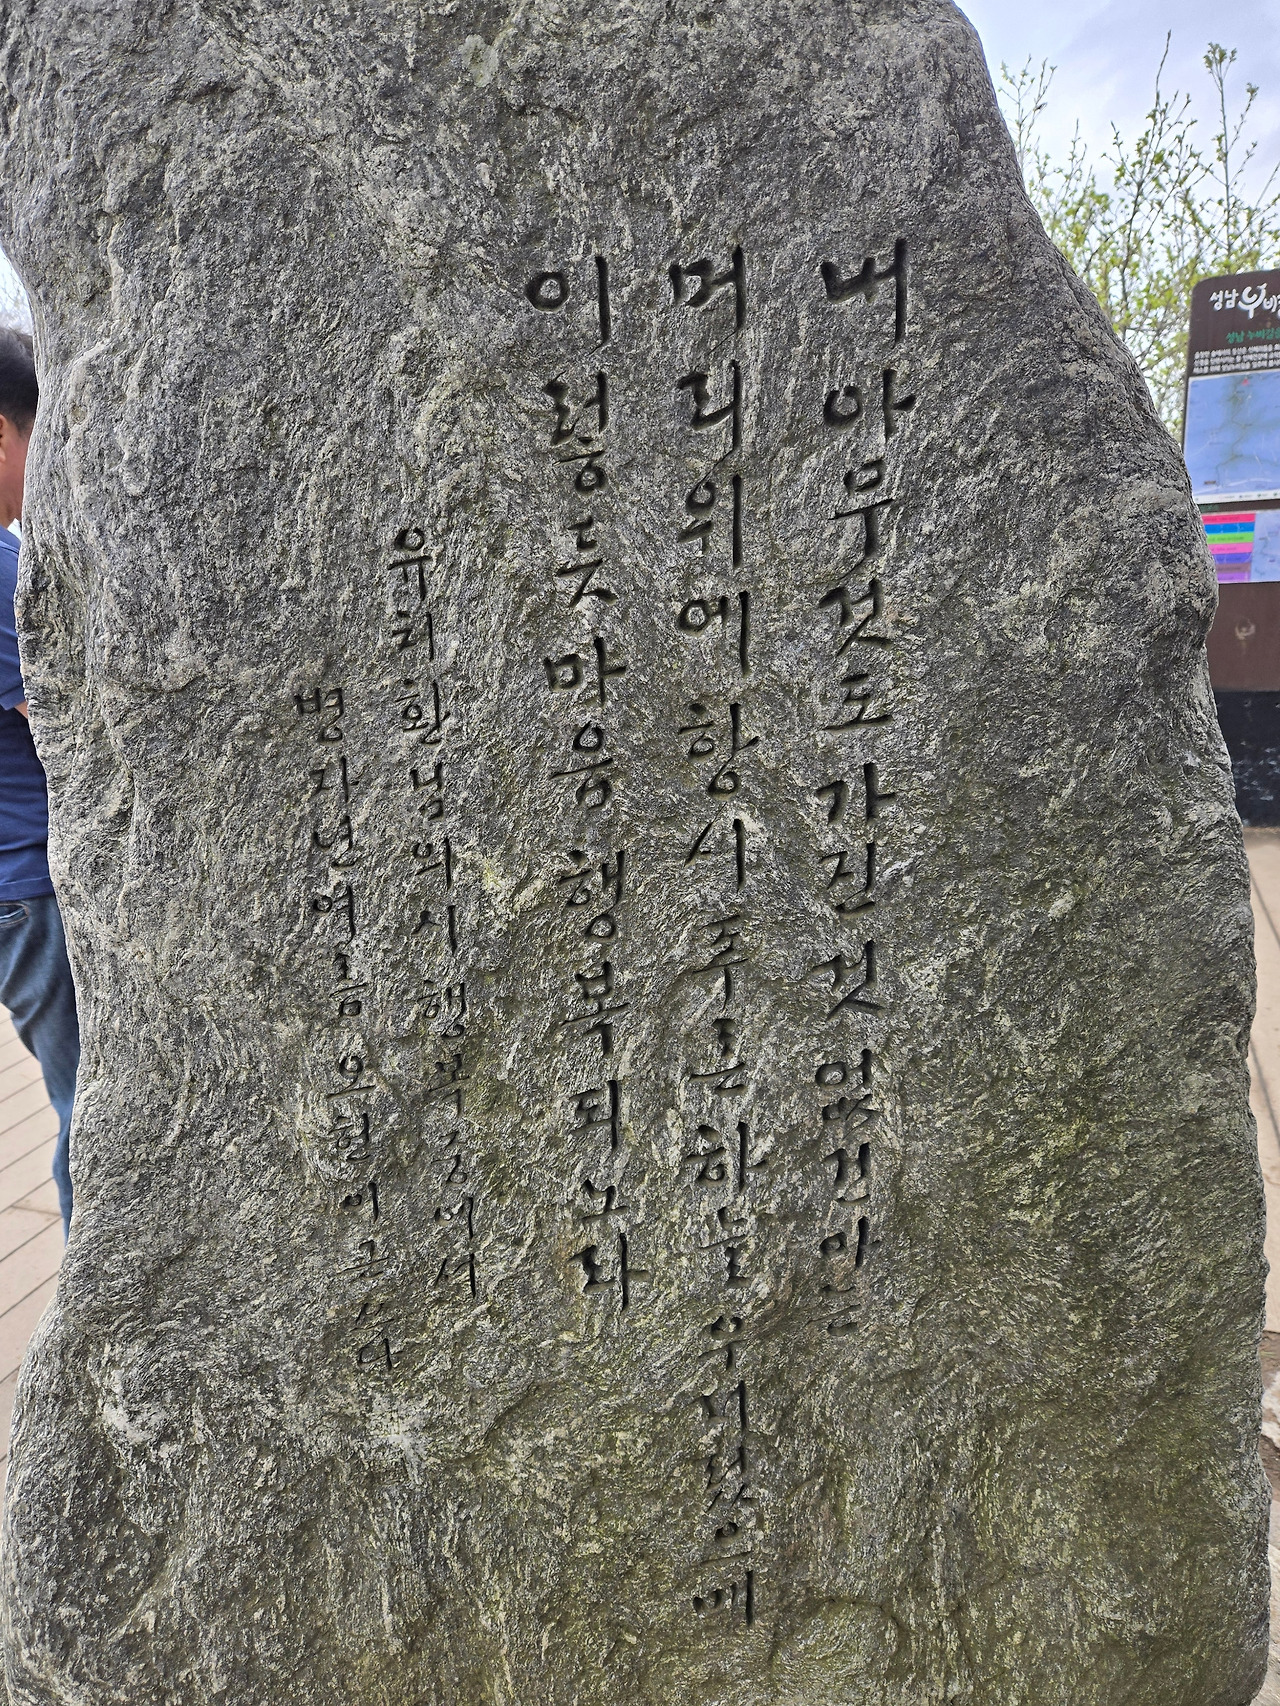 내 아무것도 가진 것 없건만은
머리 위에 항시 푸른 하늘 우러렀으매
이렇듯 마음 행복되노라
유치환님의 시 행복 중에서
병자년 여름 오현 이근 쓰다
성남누비길
성남 누비길